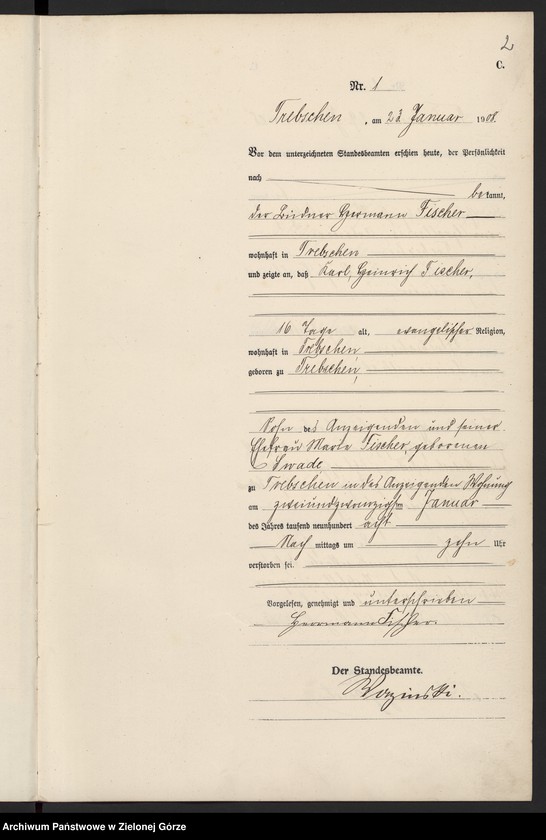 2
C.
Nr. 1
Trebschen, am 23 Januar 1908.
Vor dem unterzeichneten Standesbeamten erschien heute, der Persönlichkeit
nach
bekannt,
der Büdner Hermann Fischer
wohnhaft in Trebschen
und zeigte an, daß Karl, Heinrich Fischer,
16 Tage alt, evangelischer Religion,
wohnhaft in Trebschen,
geboren zu Trebschen,
Sohn des Anzeigenden und seiner
Ehefrau Marie Fischer, geborenen
Swade
zu Trebschen in des Anzeigenden Wohnung
am zweiundzwanzigsten Januar
des Jahres tausend neunhundert acht
Nachmittags um zehn Uhr
verstorben sei.
Vorgelesen, genehmigt und unterschrieben
Herrmann Fischer.
Der Standesbeamte.
Archiwum Państwowe w Zielonej Górze